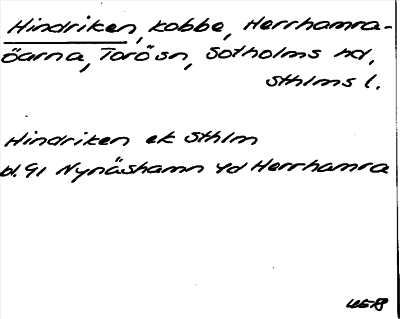 Hindriken, kobbe, Herrhamra-
öarna, Torö sn, Sotholms hd,
Sthlms l.
Hindriken ek Sthlm
bl. 91 Nynäshamn 4d Herrhamra